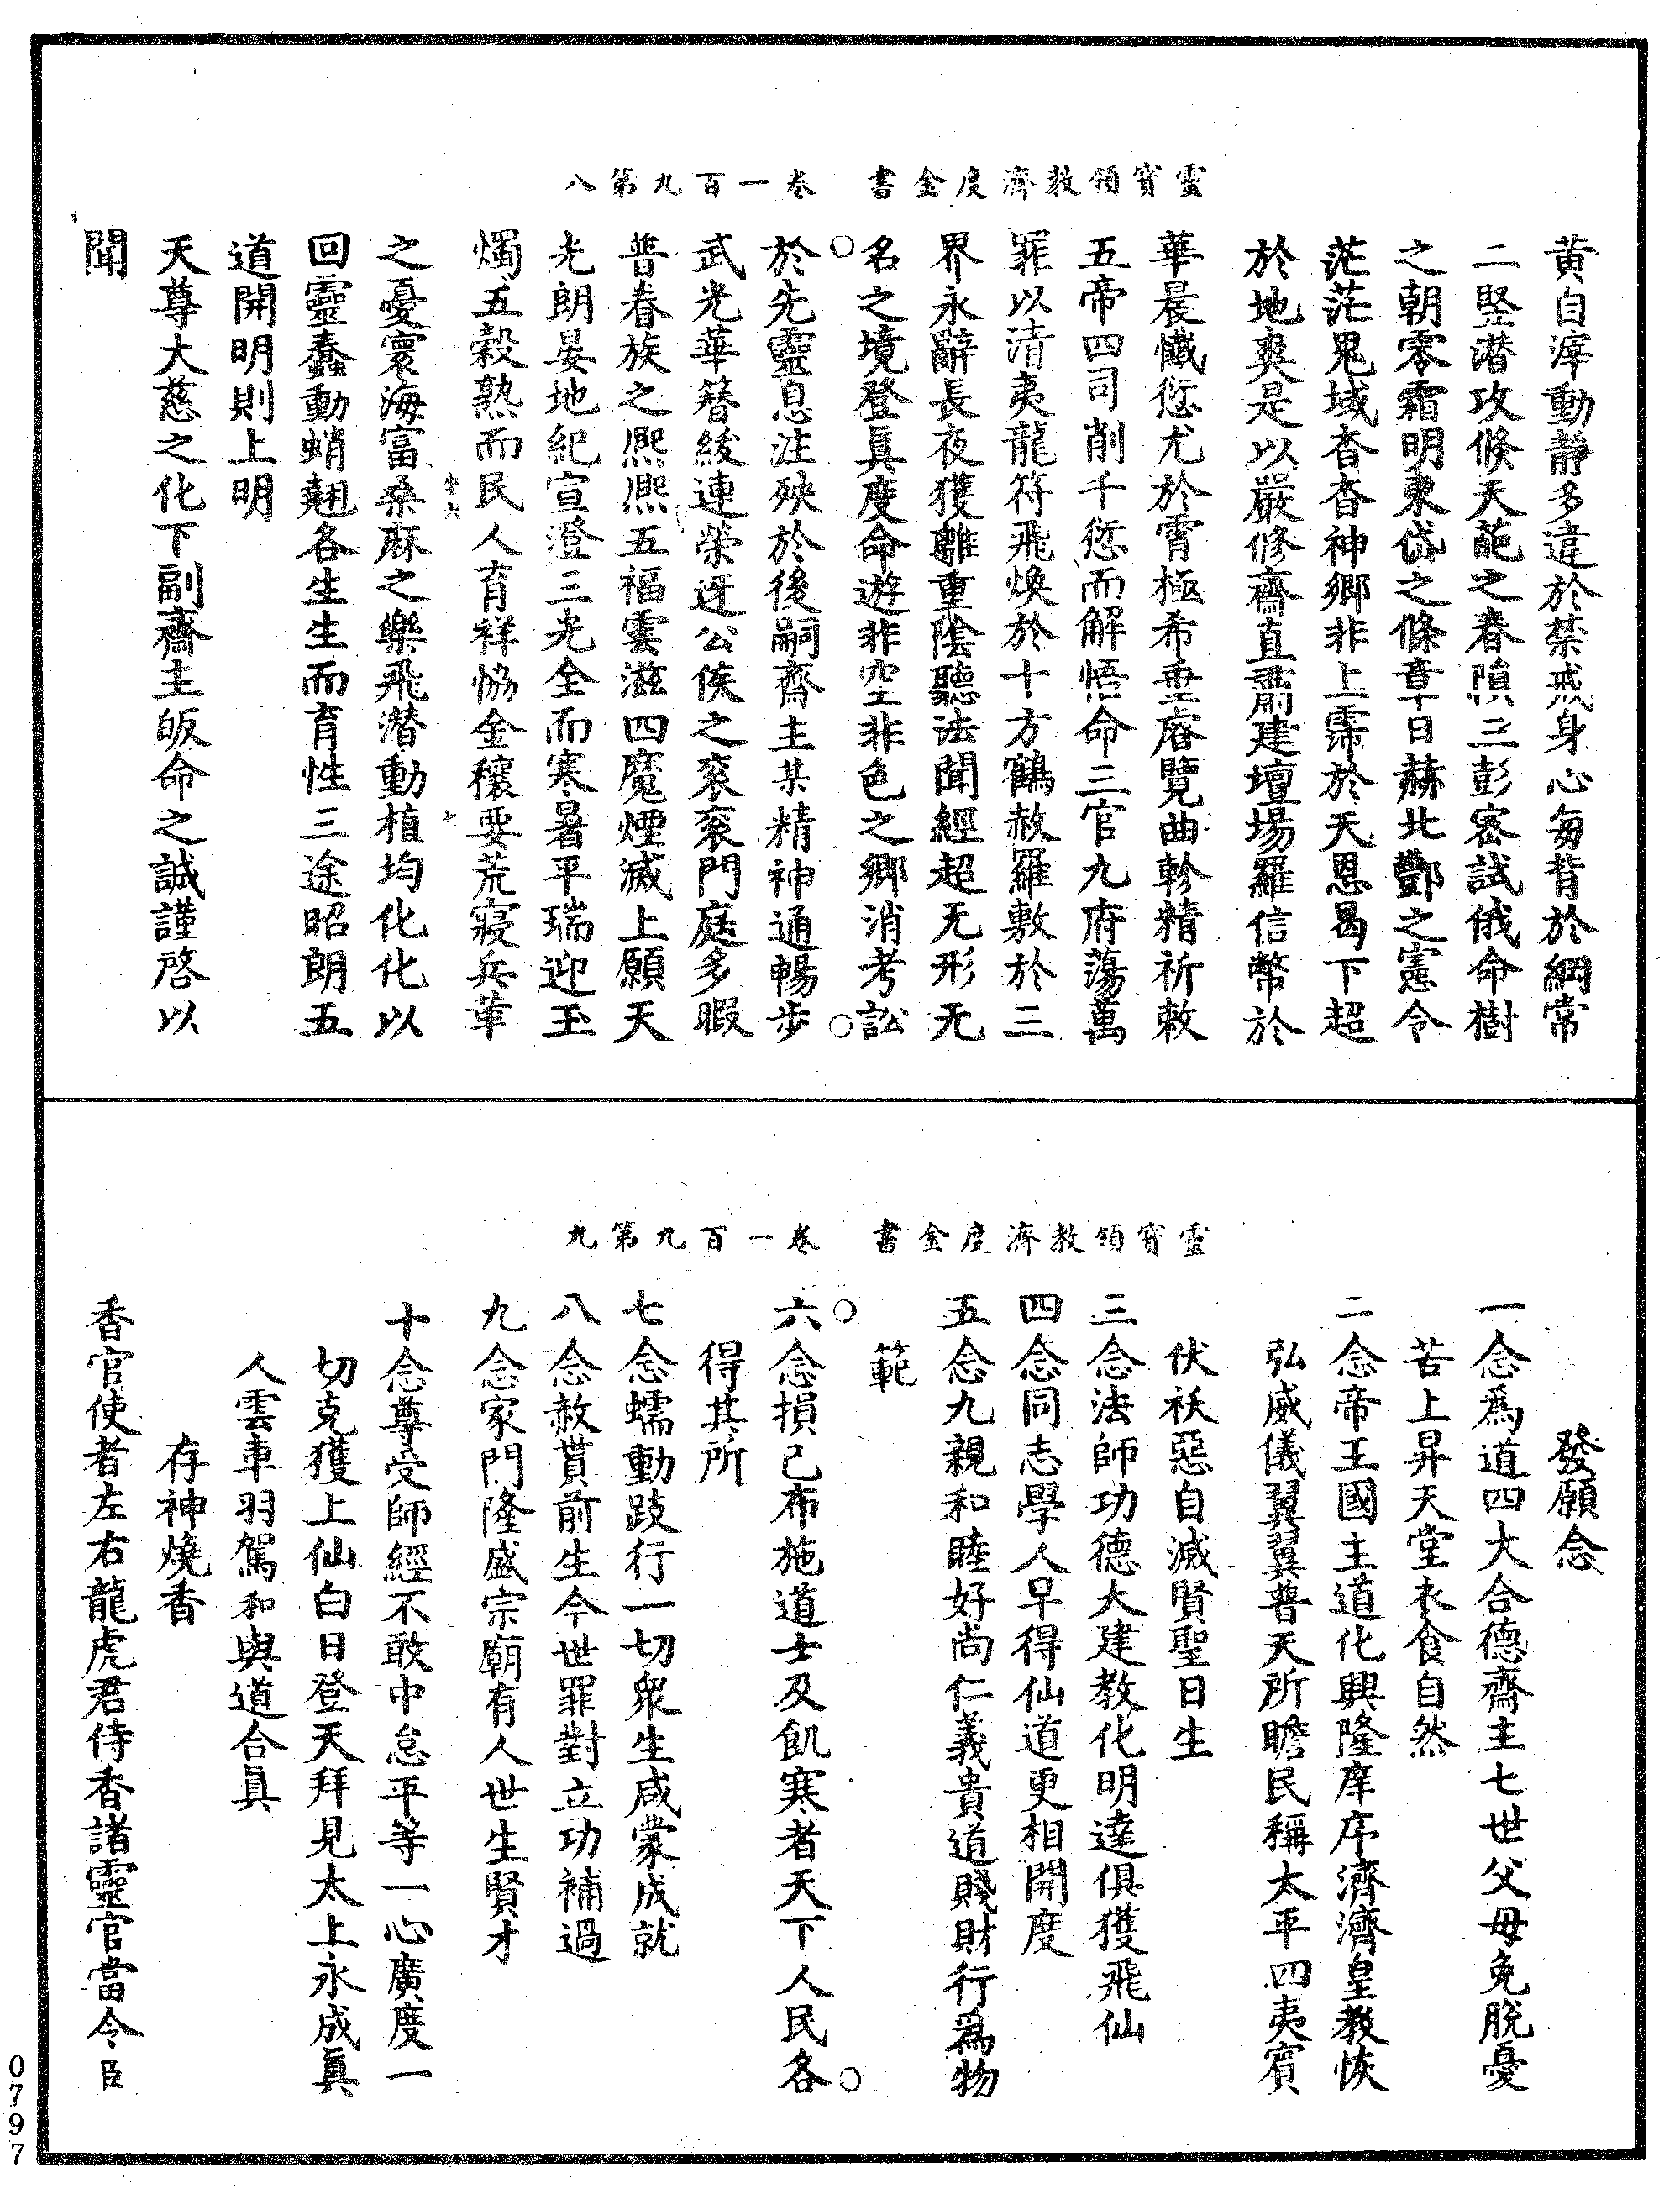 靈寶領教濟度金書　卷一百九第八
黃白滓動靜多違於禁戒身心每背於綱常
二竪潛攻倏天葩之春隕三彭密試俄命樹
之朝零霜明東岱之條章日赫北酆之憲令
茫茫鬼域杳杳神鄉非上霈於天恩曷下超
於地爽是以嚴修齋直肅建壇場羅信幣於
華晨懺愆尤於霄極希垂睿覽曲軫精祈敕
五帝四司削千愆而解悟命三官九府蕩萬
罪以清夷龍符飛煥於十方鶴赦羅敷於三
界永辭長夜獲離重陰聽法聞經超无形无
名之境登眞度命遊非空非色之鄉消考訟
於先靈息注殃於後嗣齋主某精神通暢步
武光華簪紱連榮迓公侯之衮衮門庭多暇
普春族之熈熈五福雲滋四魔煙滅上願天
光朗晏地紀宣澄三光全而寒暑平瑞迎玉
燭五穀熟而民人育祥恊金穰要荒寢兵革
之憂寰海富桑麻之樂飛潛動植均化化以
回靈蠢動蛸翹各生生而育性三途昭朗五
道開明則上明
天尊大慈之化下副齋主皈命之誠謹啓以
聞
靈寶領教濟度金書　卷一百九第九
發願念
一念爲道四大合德齋主七世父母免脫憂
苦上昇天堂衣食自然
二念帝王國主道化興隆庠序濟濟皇教恢
弘威儀翼翼普天所瞻民稱太平四夷賓
伏祅惡自滅賢聖日生
三念法師功德大建教化明達俱獲飛仙
四念同志學人早得仙道更相開度
五念九親和睦好尚仁義貴道賤財行爲物
範
六念損己布施道士及飢寒者天下人民各
得其所
七念蠕動跂行一切衆生咸蒙成就
八念赦貰前生今世罪對立功補過
九念家門隆盛宗廟有人世生賢才
十念尊受師經不敢中怠平等一心廣度一
切克獲上仙白日登天拜見太上永成眞
人雲車羽駕和與道合眞
存神燒香
香官使者左右龍虎君侍香諸靈官當令臣
0797